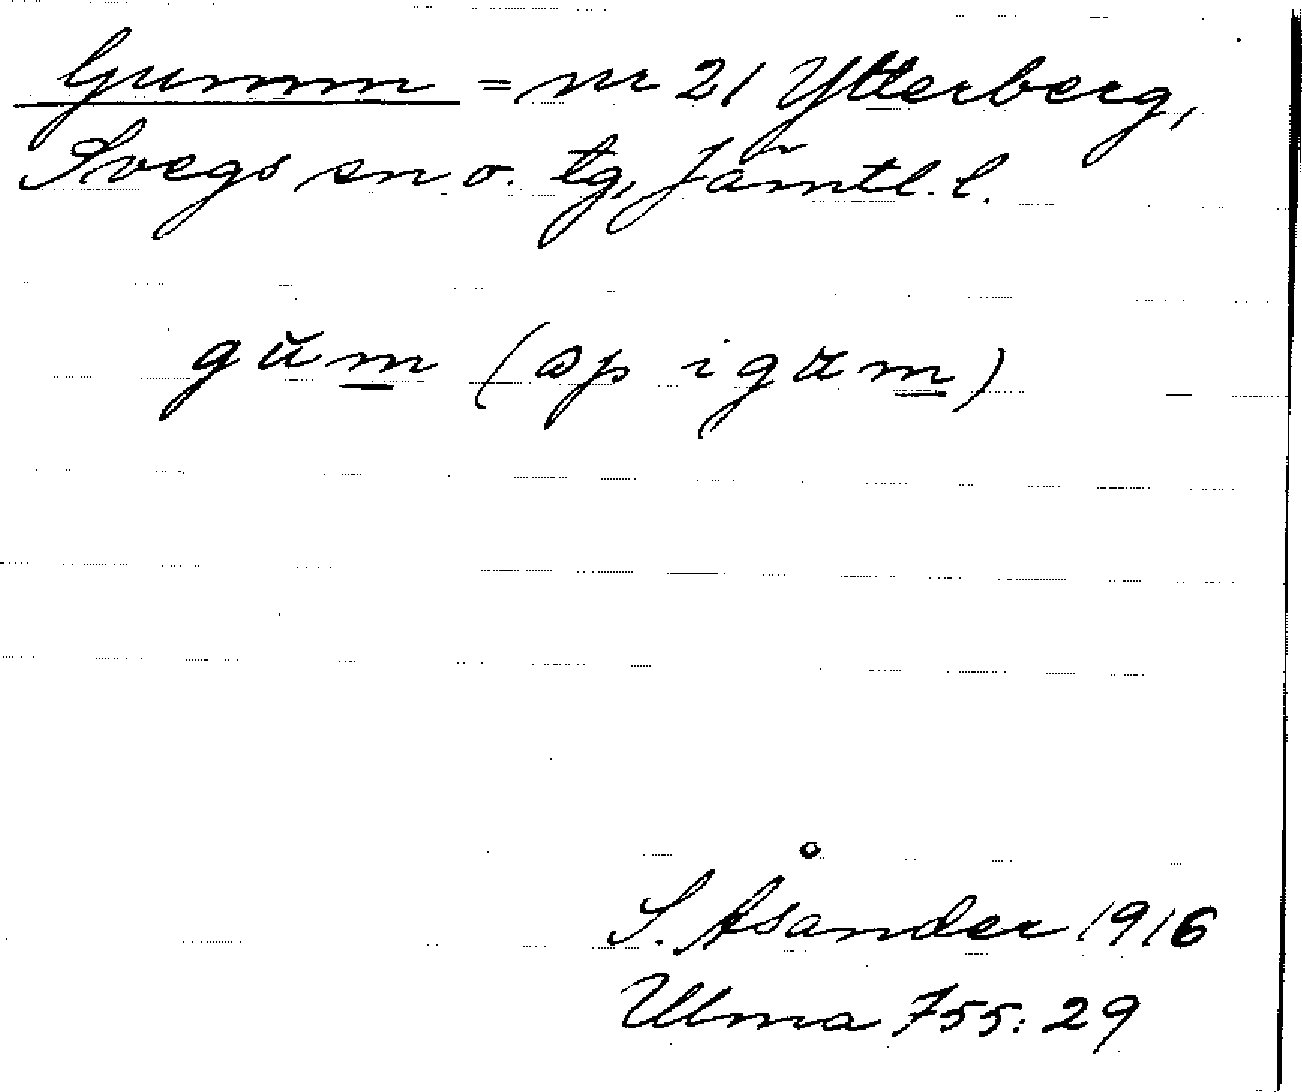 Gumm = nr 21 Ytterberg,
Svegs sn o. tg, Jämtl. l.
gŭm (sp i gum)
S. Åsander 1916
Ulma 755:29